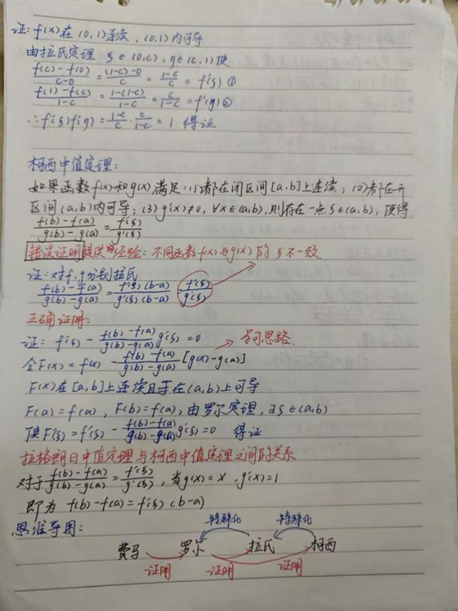 证: f(x)在(0,1)连续, (0,1)内可导
由拉氏定理 ξ∈(0,c), η∈(c,1) 使
f(c)-f(0)/c-0 = (1-c)-0/c = 1-c/c = f'(ξ) ①
f(1)-f(c)/1-c = 1-(1-c)/1-c = c/1-c = f'(η) ②
∴f'(ξ)f'(η) = 1-c/c · c/1-c = 1 得证
柯西中值定理:
如果函数f(x)和g(x)满足:(1)都在闭区间[a,b]上连续; (2)都在开
区间(a,b)内可导; (3) g'(x)≠0, ∀x∈(a,b), 则存在一点ξ∈(a,b), 使得
f(b)-f(a)/g(b)-g(a) = f'(ξ)/g'(ξ)
错误证明提供的经验: 不同函数f(x)与g(x)的ξ不一致
证: 对f, g分别拉氏
f(b)-f(a)/g(b)-g(a) = f'(ξ)(b-a)/g'(ξ)(b-a) = f'(ξ)/g'(ξ)
正确证明:
证: f'(ξ) - f(b)-f(a)/g(b)-g(a) g'(ξ) = 0 → 导向思路
令F(x) = f(x) - f(b)-f(a)/g(b)-g(a) [g(x)-g(a)]
F(x)在[a,b]上连续且在(a,b)上可导
F(a) = f(a), F(b) = f(a), 由罗尔定理, ∃ξ∈(a,b)
使F'(ξ) = f'(ξ) - f(b)-f(a)/g(b)-g(a) g'(ξ) = 0 得证
拉格朗日中值定理与柯西中值定理之间的关系
对于 f(b)-f(a)/g(b)-g(a) = f'(ξ)/g'(ξ), 当g(x) = x, g'(x) = 1
即为 f(b)-f(a) = f'(ξ)(b-a)
思维导图:
特殊化 特殊化
费马 罗尔 拉氏 柯西
证明 证明 证明